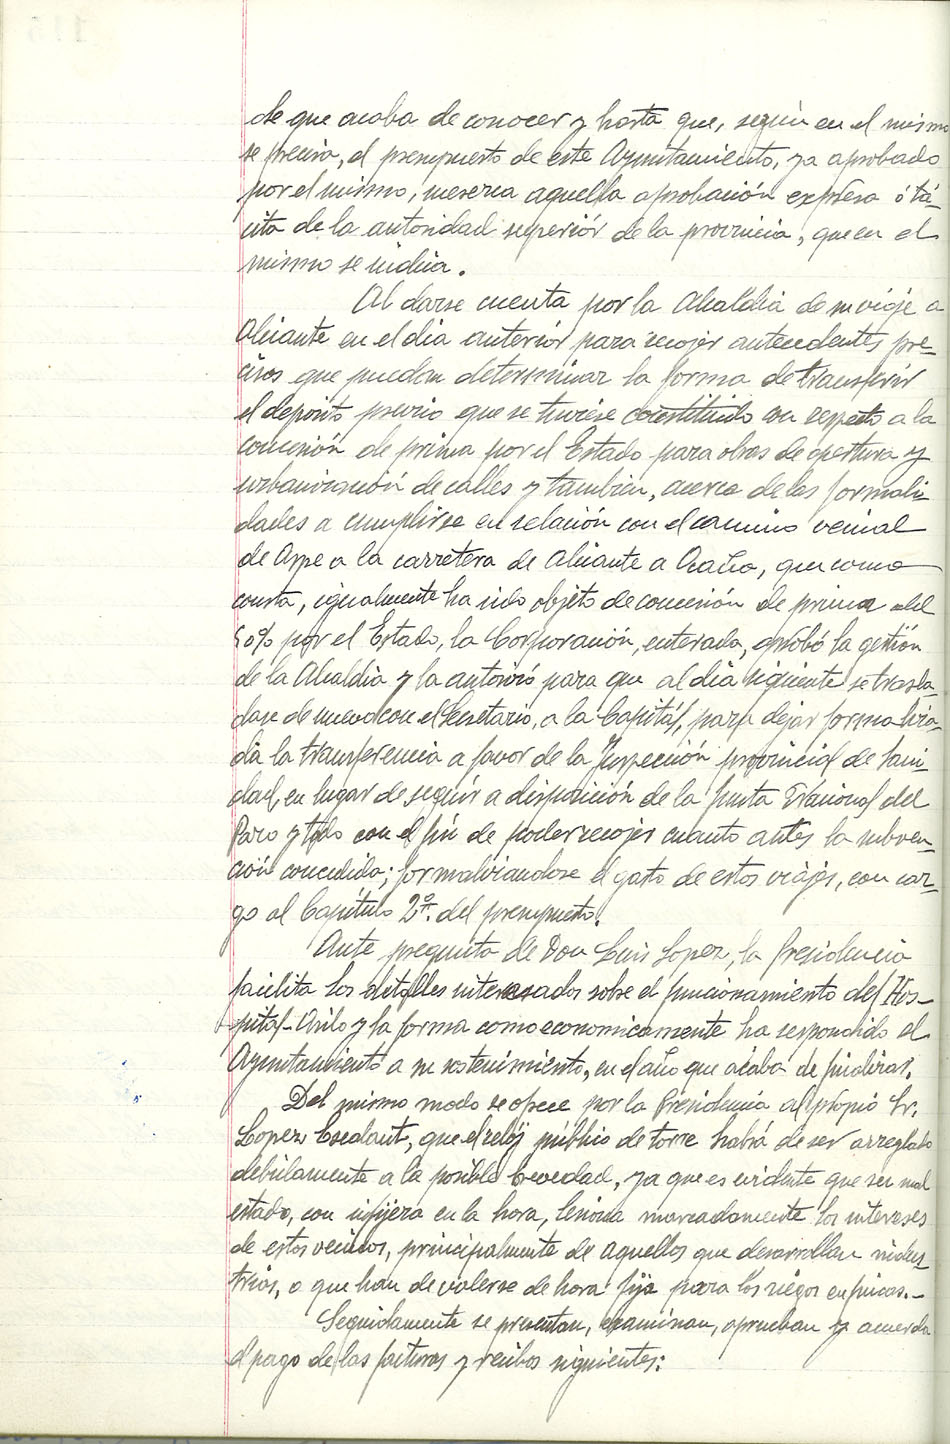 de que acaba de conocer y hasta que, según en el mismo
se precisa, el presupuesto de este Ayuntamiento, ya aprobado
por el mismo, merezca aquella aprobación expresa ó tá-
cita de la autoridad superiór de la provincia, que en el
mismo se indica.
Al darse cuenta por la Alcaldia de su viaje a
Alicante en el dia anteriór para recojer antecedentes pre-
cisos que puedan determinar la forma de transferir
el depósito previo que se tuviese constituido con respecto a la
concesión de prima por el Estado para obras de apertura y
urbanización de calles y tambien, acerca de las formali-
dades a cumplirse en relación con el camino vecinal
de Aspe a la carretera de Alicante a Ocaña, que como
consta, igualmente ha sido objeto de concesión de prima del
50% por el Estado, la Corporación, enterada, aprobó la gestión
de la Alcaldia y la autorizó para que al dia siguiente se trasla-
dase de nuevo con el Secretario, a la Capitál, para dejar formaliza-
da la transferencia a favor de la Inspección provincial de Sani-
dad, en lugar de seguir a disposición de la Junta Nacional del
Paro y todo con el fin de poder recojer cuanto antes la subven-
ción concedida; formalizandose el gasto de estos viajes, con car-
go al Capítulo 2º. del presupuesto.
Ante pregunta de Don Luis López, la Presidencia
facilita los detalles interesados sobre el funcionamiento del Hos-
pital-Asilo y la forma como economicamente ha respondido el
Ayuntamiento a su sostenimiento, en el año que acaba de finalizar.
Del mismo modo se ofrece por la Presidencia al propio Sr.
Lopez Escolant, que el reloj público de torre habrá de ser arreglado
debidamente a la posible brevedad, ya que es evidente que su mal
estado, con fijeza en la hora, lesiona marcadamente los intereses
de estos vecinos, principalmente de aquellos que desarrollan indus-
trias, o que han de valerse de hora fija para los riegos en fincas.-
Seguidamente se presentan, examinan, aprueban y acuerda
el pago de las facturas y recibos siguientes: